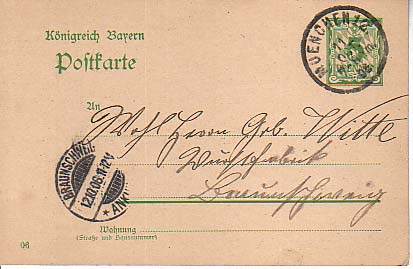 Königreich Bayern
Postkarte
MUENCHEN
An
Wohl Herrn Gebr. Witte
Wurstfabrik
Braunschweig
BRAUNSCHWEIG
12.10.06.11-12V
* ANK
Wohnung
(Straße und Hausnummer)
06